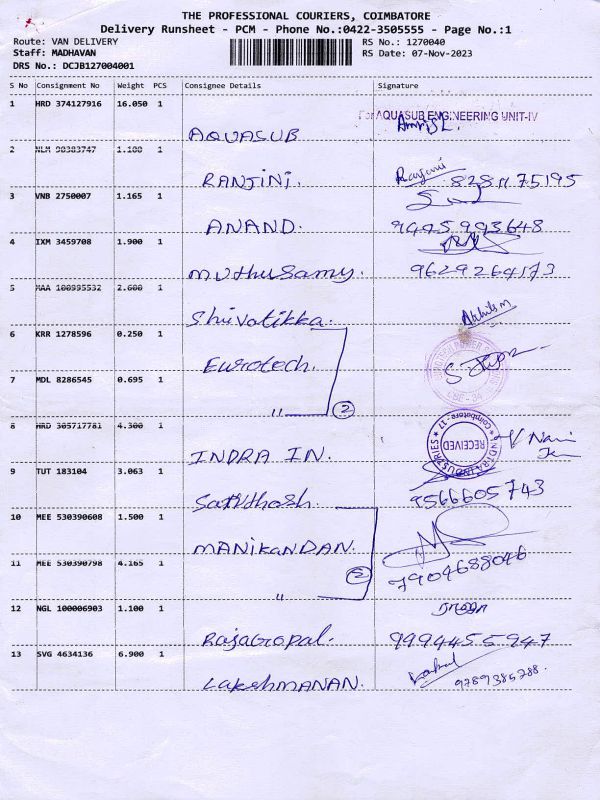 THE PROFESSIONAL COURIERS, COIMBATORE
Delivery Runsheet - PCM - Phone No.:0422-3505555 - Page No.:1
Route: VAN DELIVERY RS No.: 1270040
Staff: MADHAVAN RS Date: 07-Nov-2023
DRS No.: DCJB127004001
S No Consignment No Weight PCS Consignee Details Signature
1 HRD 374127916 16.050 1
For AQUASUB ENGINEERING UNIT-IV
AQUASUB
2 NLM 98383747 1.100 1
RANJINI. 8281175195
3 VNB 2750007 1.165 1
ANAND. 9445993648
4 IXM 3459708 1.900 1
Muthusamy. 9629264173
5 MAA 100995532 2.600 1
Shivatikka.
6 KRR 1278596 0.250 1
Eurotech.
7 MDL 8286545 0.695 1
" 2
8 HRD 305717781 4.300 1
INDRA INDUSTRIES Coimbatore - 17. RECEIVED
INDRA IN.
9 TUT 183104 3.063 1
Santhosh. 9566605743
10 MEE 530390608 1.500 1
MANIKANDAN.
11 MEE 530390798 4.165 1
" 2 7904688046
12 NGL 100006903 1.100 1
RajaGopal. 9994455947
13 SVG 4634136 6.900 1
LakshMANAN. 9789385788.